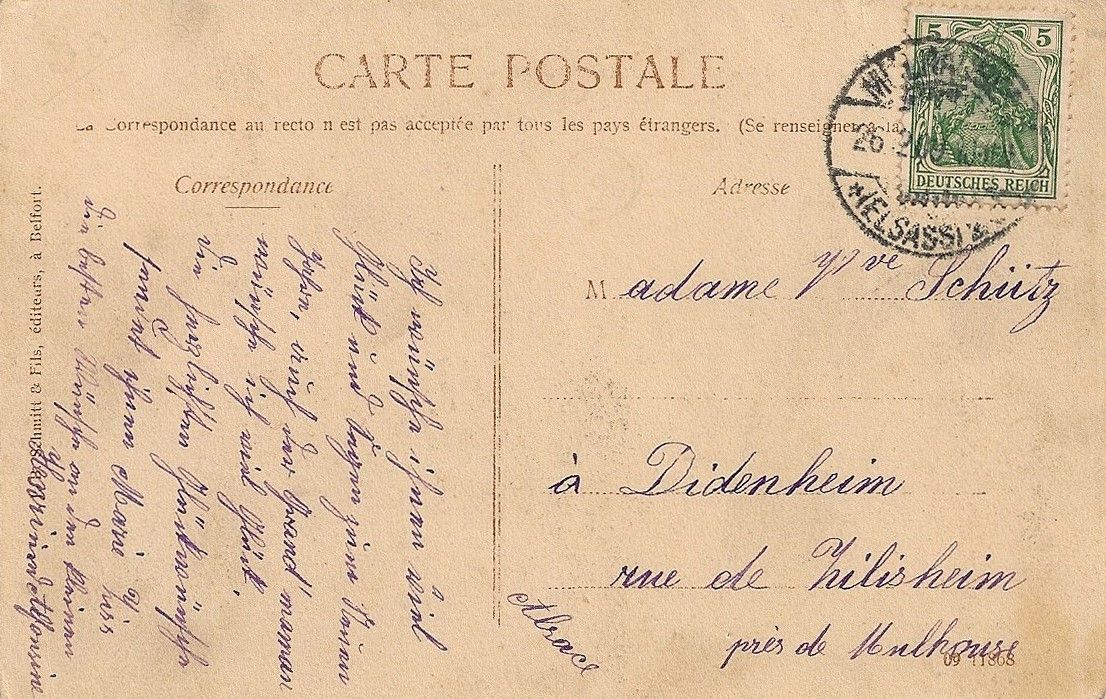 CARTE POSTALE
La Correspondance au recto n est pas acceptée par tous les pays étrangers. (Se renseigner à la
Correspondance
Adresse
5 5
DEUTSCHES REICH
26.2.
(ELSASS)
Schmitt & Fils, éditeurs, à Belfort.
Ich wünsche ihnen viel
Glück und Segen zum Neuen
Jahr, auch der Grand'maman
wünsche ich viel Glück.
Die herzlichsten Glückwünsche
sendet ihnen Marie
die besten Wünsche an den kleinen
Alfonsine
Madame Vve Schütz
à Didenheim
rue de Zilisheim
près de Mulhouse
Alsace
09 11868